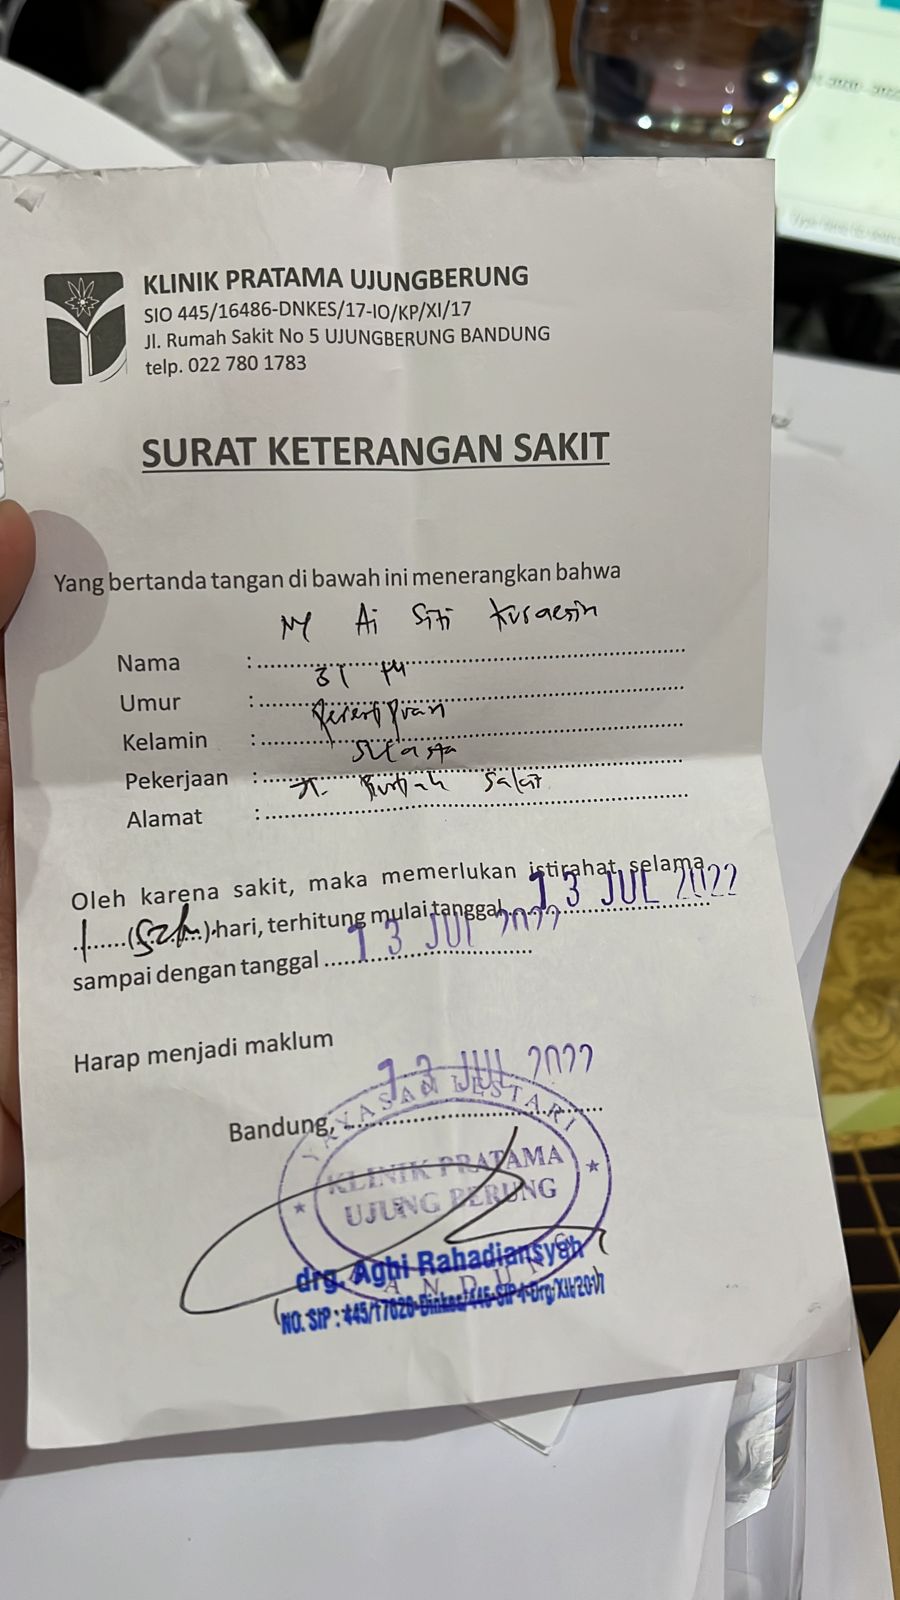 KLINIK PRATAMA UJUNGBERUNG
SIO 445/16486-DNKES/17-IO/KP/XI/17
Jl. Rumah Sakit No 5 UJUNGBERUNG BANDUNG
telp. 022 780 1783
SURAT KETERANGAN SAKIT
Yang bertanda tangan di bawah ini menerangkan bahwa
Nama : Ai Siti
Umur : 31
Kelamin :
Pekerjaan :
Alamat : Jl. Rumah Sakit
Oleh karena sakit, maka memerlukan istirahat selama
1 (satu) hari, terhitung mulai tanggal 13 JUL 2022
sampai dengan tanggal 13 JUL 2022
Harap menjadi maklum
Bandung, 13 JUL 2022
YAYASAN LESTARI
KLINIK PRATAMA
UJUNG BERUNG
BANDUNG
drg. Agbi Rahadiansyah